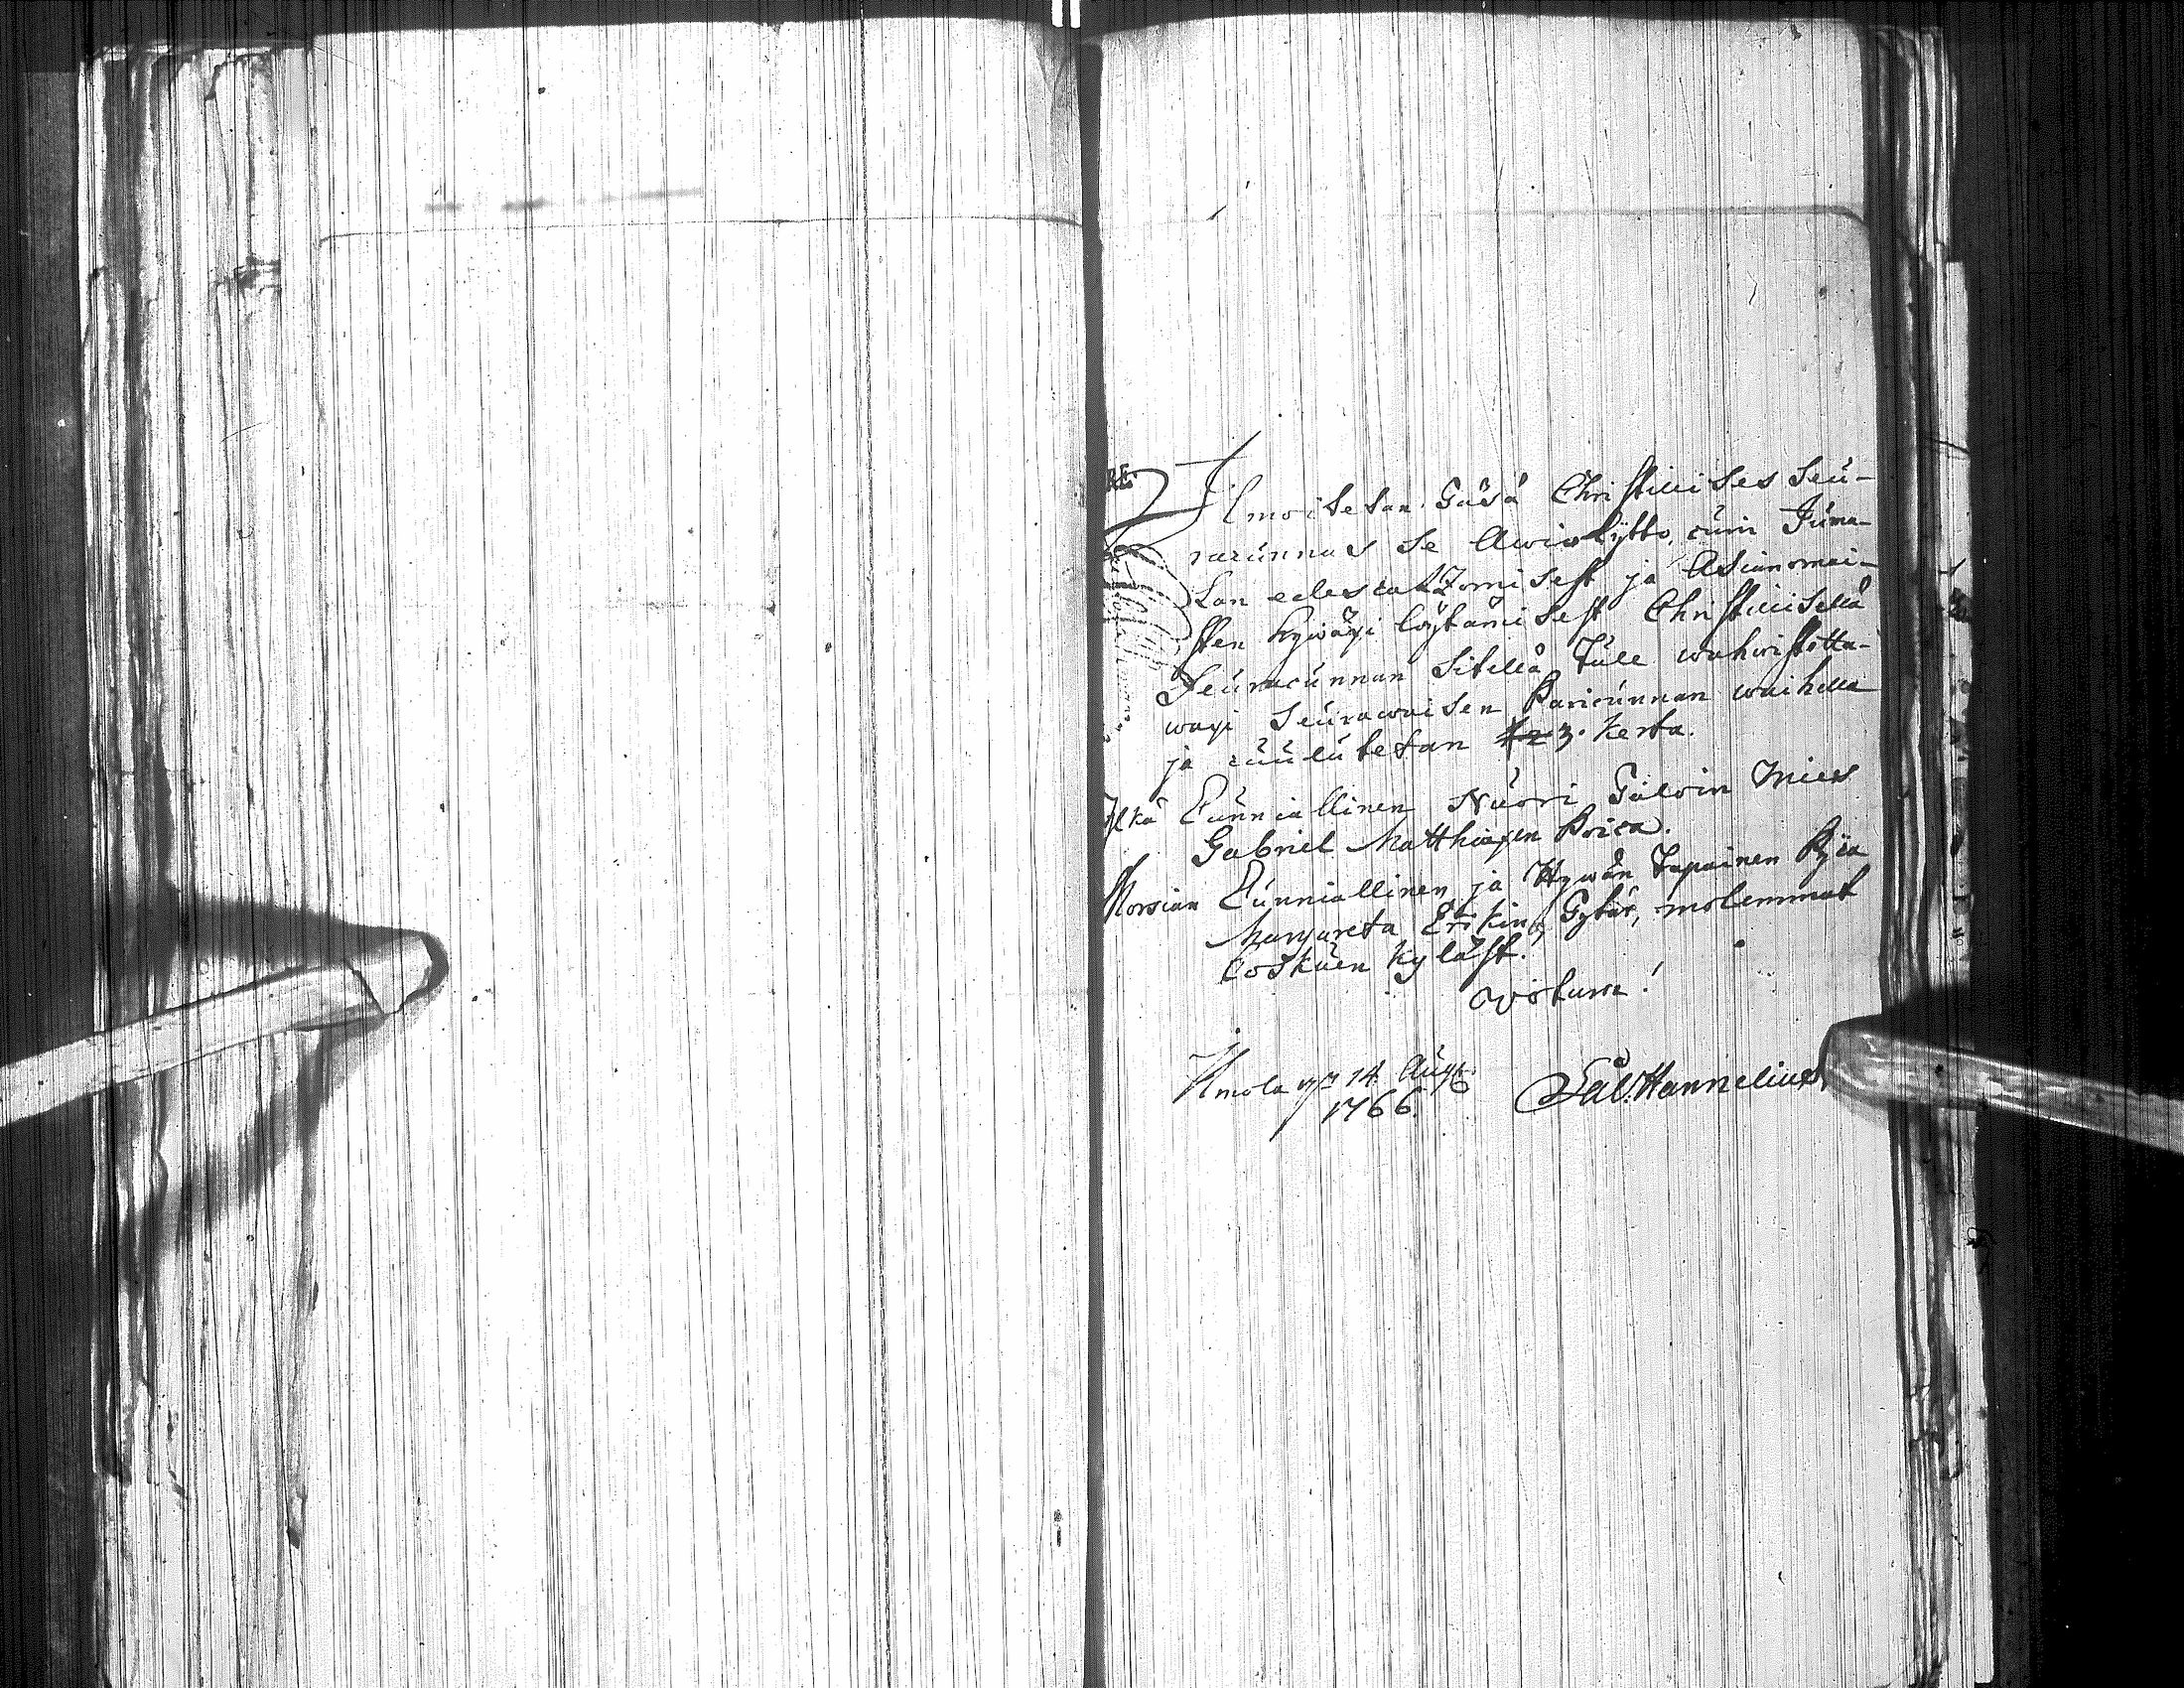 Ilmoitetan Täsä Christillises Seú-
racúnnas se Awiokäÿttö, cúin Júma-
lan edescatzomisest ja Asianomai-
sten hywäxi löytämisest Christillisellä
Seúracúnnan sitellä túle wahwistetta-
waxi Seúrawaisen Paricúnnan waihella
ja cúúlútetan 1 2 3. kerta.
Ylkä Cúnniallinen Núori Taloin Mies
Gabriel Matthiaxen Poica.
Morsian Cúnniallinen ja Hywän Tapainen Pijca
Margareta Erikin Tytär, molemmat
Coskúen kyläst.
Votum!
Ilmola 14 Aúg:
1766. Sal. Hannelius